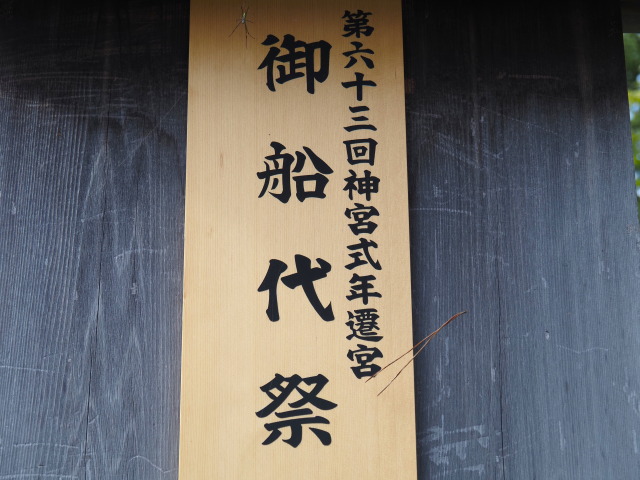 第六十三回神宮式年遷宮
御船代祭